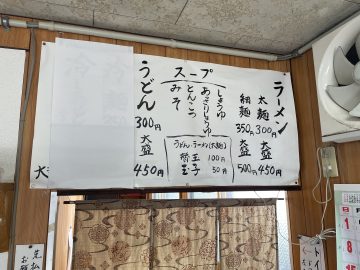 ラーメン
太麺 300円 大盛 450円
細麺 350円 大盛 500円
スープ
しょうゆ
あっさりしょうゆ
とんこつ
みそ
うどん・ラーメン(太麺)
替玉 100円
玉子 50円
うどん
300円
大盛
450円
大
先払
お願
トイ
1
8